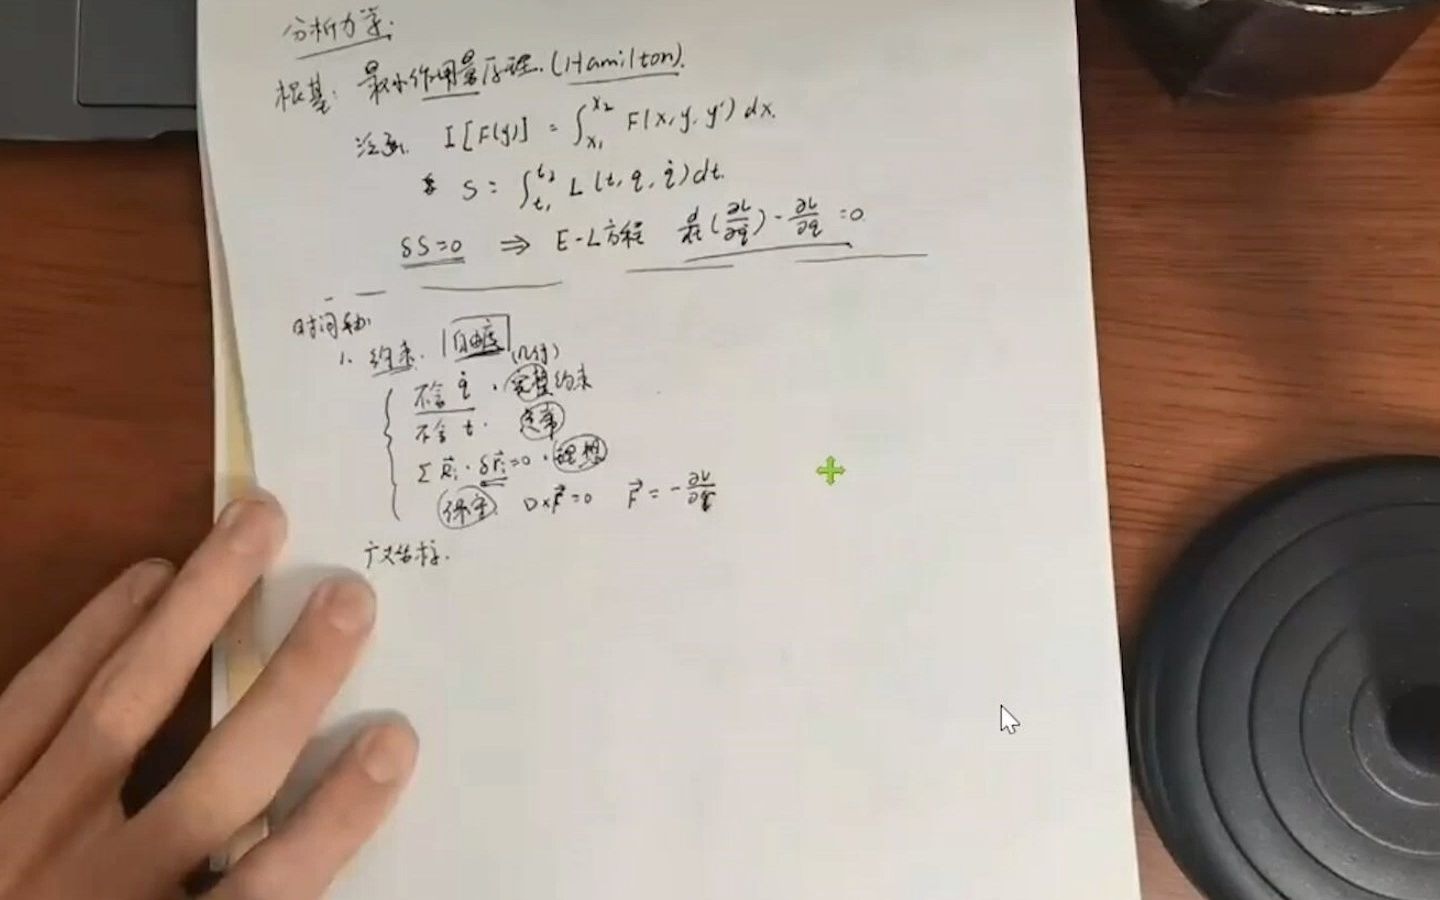 分析力学.
根基: 最小作用量原理. (Hamilton).
泛函. I[F(y)] = ∫_{x₁}^{x₂} F(x, y, y') dx.
S = ∫_{t₁}^{t₂} L(t, q, q̇) dt.
δS=0 ⇒ E-L方程 d/dt(∂L/∂q̇) - ∂L/∂q = 0
时间轴:
1. 约束. 自由度
(几何)
不含 q̇ . 完整约束
不含 t.
Σ R⃗ᵢ · δr⃗ᵢ = 0 . 理想
保守. ∇×F⃗ = 0 F⃗ = -∂V/∂q
广义坐标.